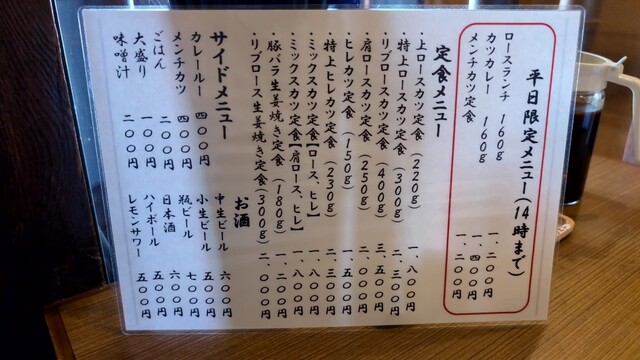 平日限定メニュー(14時まで)
ロースランチ 160g 一、二〇〇円
カツカレー 160g 一、四〇〇円
メンチカツ定食 一、二〇〇円
定食メニュー
・上ロースカツ定食(220g) 一、八〇〇円
・特上ロースカツ定食(300g) 二、三〇〇円
・リブロースカツ定食(400g) 三、五〇〇円
・肩ロースカツ定食(250g) 二、〇〇〇円
・ヒレカツ定食(150g) 一、五〇〇円
・特上ヒレカツ定食(230g) 二、三〇〇円
・ミックスカツ定食【ロース、ヒレ】 一、八〇〇円
・ミックスカツ定食【肩ロース、ヒレ】 一、八〇〇円
・豚バラ生姜焼き定食(180g) 一、二〇〇円
・リブロース生姜焼き定食(300g) 二、〇〇〇円
サイドメニュー
カレールー 四〇〇円
メンチカツ 四〇〇円
ごはん 二〇〇円
大盛り 一〇〇円
味噌汁 二〇〇円
お酒
中生ビール 六〇〇円
小生ビール 五〇〇円
瓶ビール 七〇〇円
日本酒 六〇〇円
ハイボール 五〇〇円
レモンサワー 五〇〇円